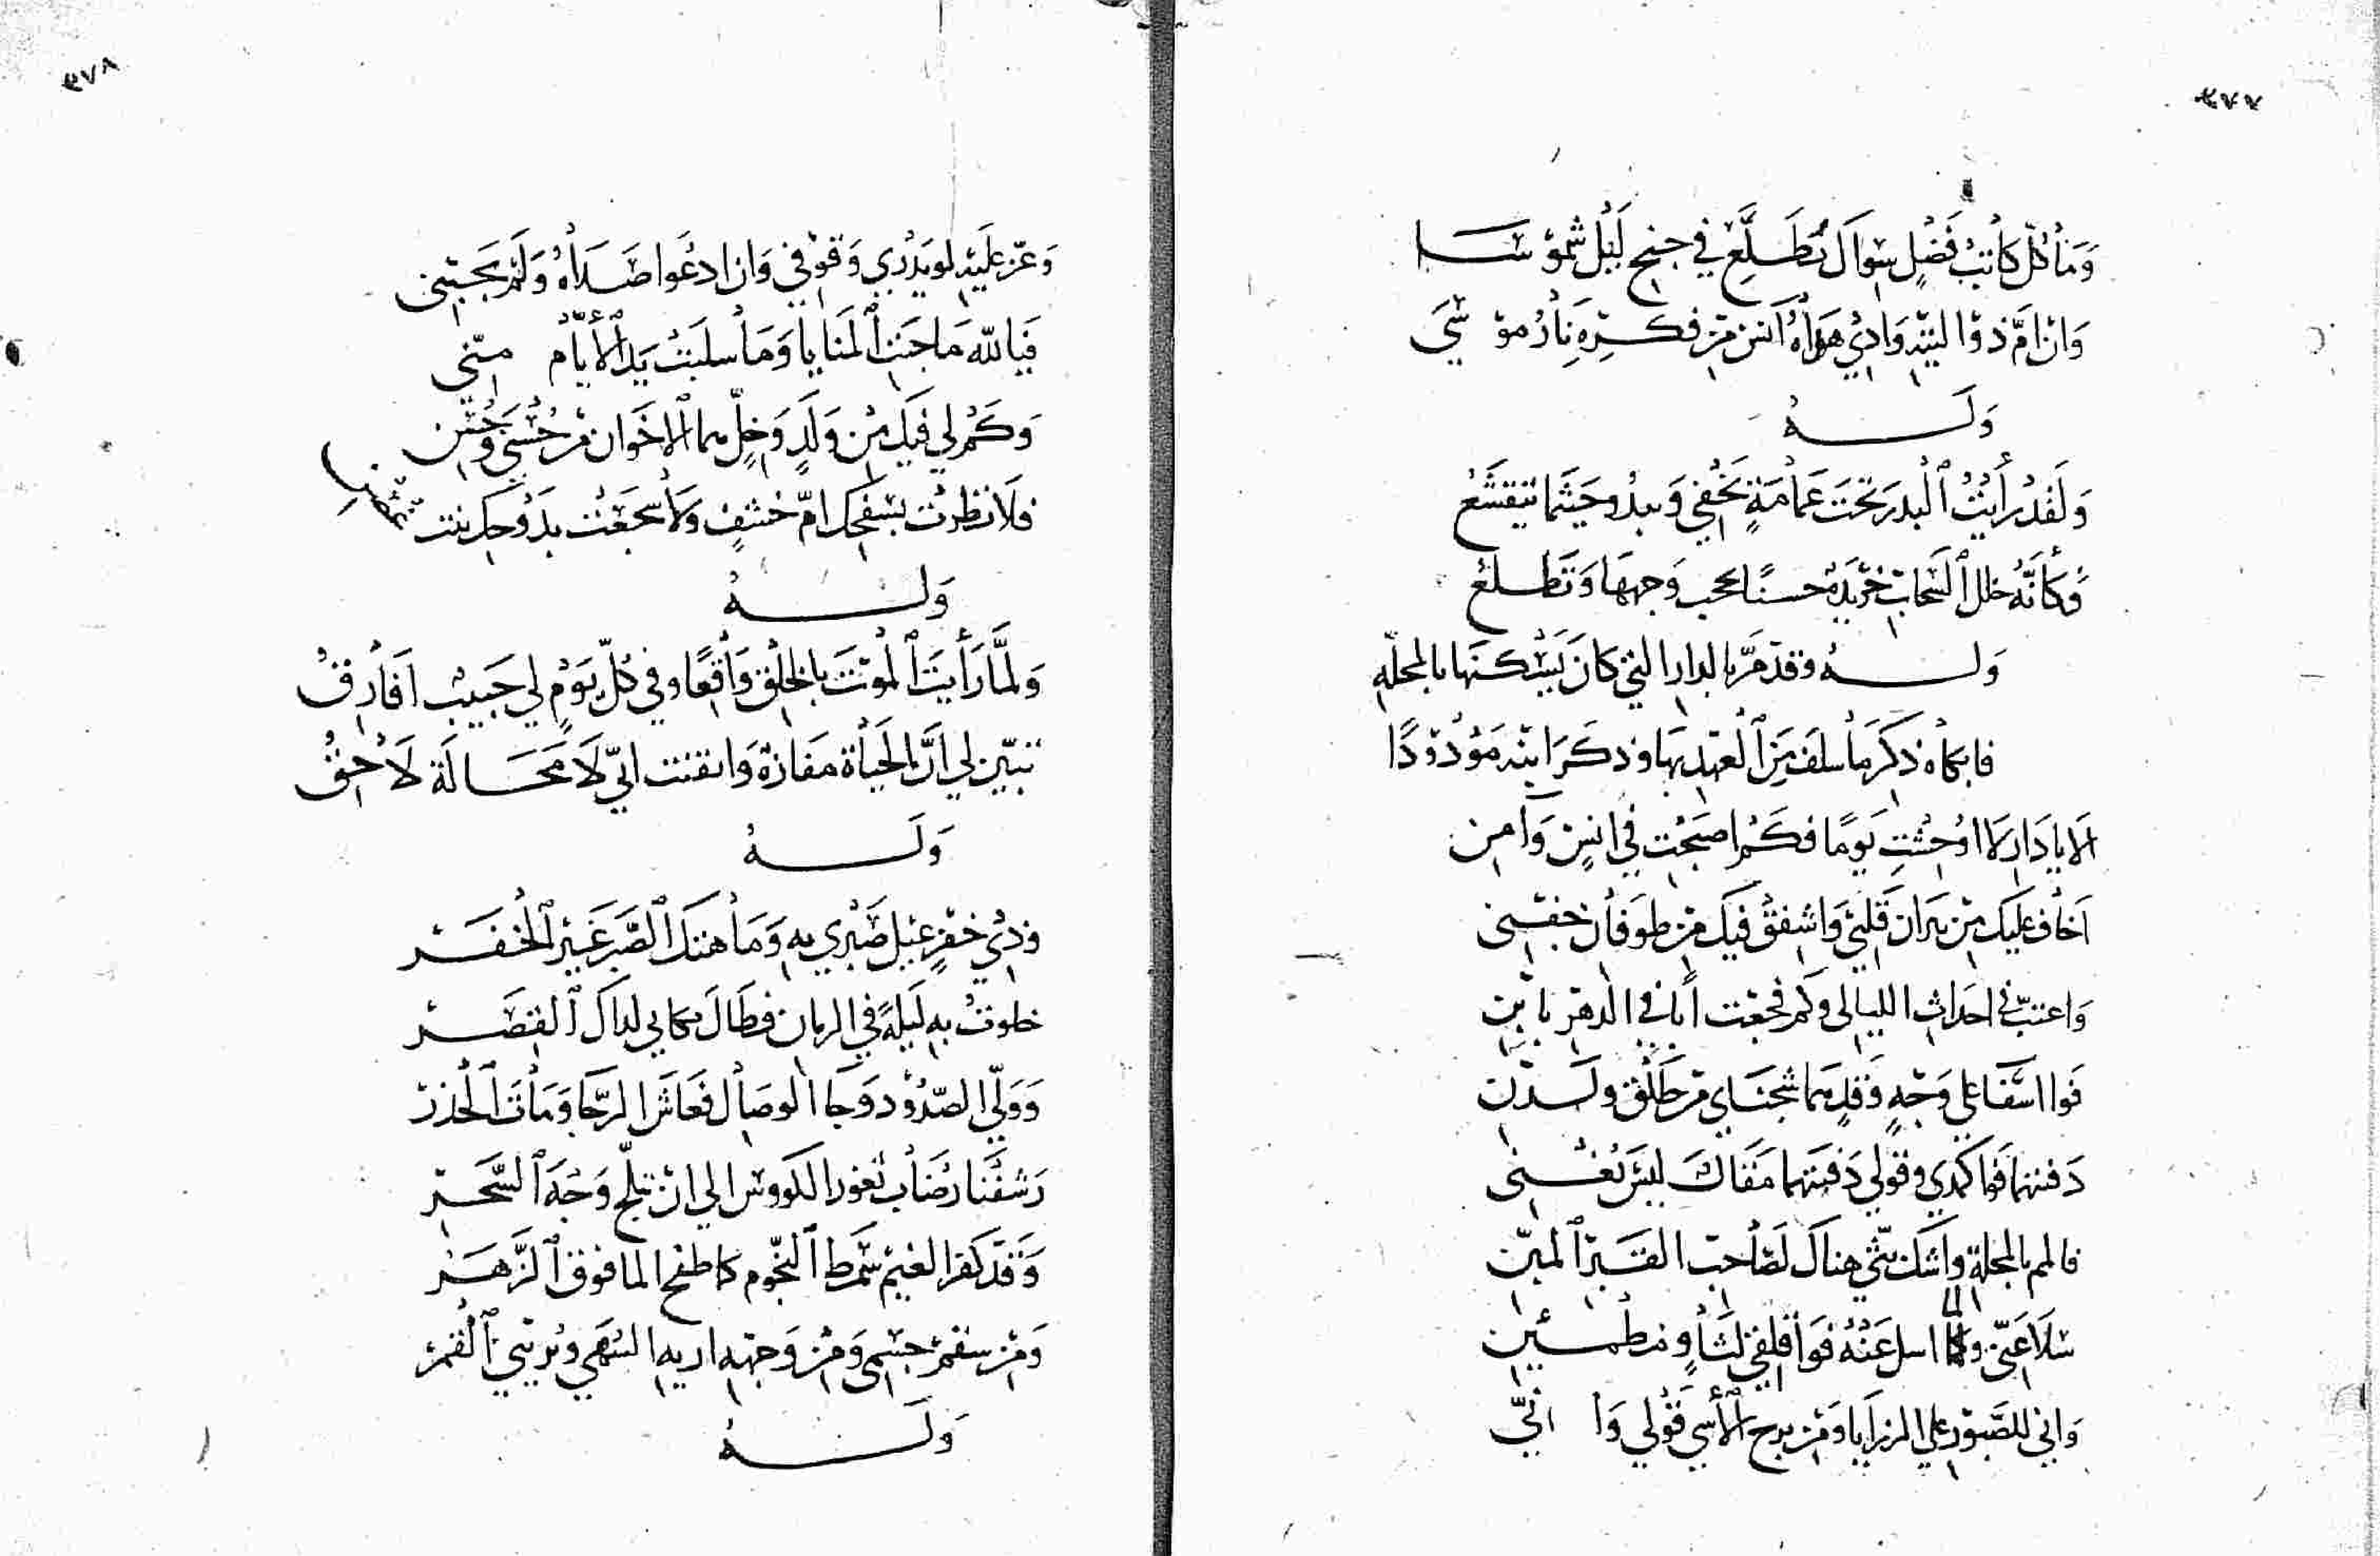 ٤٧٧
وَمَا كُلّ كاتبُ فَضْلٍ سِوَالَ تُطَلَّعِ في جنح لَيْل شموسَا
وَانْ امَّ ذوْ اليَتِيْهِ وَادِيْ هَوَاهُ آنَس مِنْ فكرِهِ نَارُ موْسَي
وَلَهُ
وَلَقَدْ رَأَيْتُ ٱلْبدرَ تَحْتَ غمَامَةٍ يَخْفي وَيبدُو حَيثما تتقَشَّعُ
وَكَأنَّهُ خلل ٱلسَّحَابِ خرْيدَةٌ حسنًا تحجب وَجهَهَا وَتَطلعْ
وَلهُ وقدْ مَرَّ بالدار التي كانَ يَسْكنهَا بالمحلّه
فابكاه ذِكرَ مَا سلفَ مِنَ ٱلْعَهْدِ بهَا وذكَرَ ابنْه مَوْدُوْدًا
الَا يا دَار لَا اوْحِشْتِ يَومًا فكَمْ اصبَحْتِ في انسٍ وَآمن
اخاف عليك مِنْ نيَران قَلبيْ وَاشِفقُ فيَك مِنْ طوَفَان جفْني
وَاعتبُ في احَداثِ الليالى وَكم فجعْت أبًا في الدهْر بابْنِ
فَوا اسَفَا على وَجْهٍ وَقدٍ هما شجَنَاي مِنْ طَلْقٍ ولَدْنِ
دَفنتهما فَوا كمدي وقَولي دَفنتهما مَقَالَ ليْسَ يُغْني
فالمم بالمحلة وَاشك بثّي هناكَ لصَاحبِ القَبرْ ٱلمبنّ
سَلَا عَنّي ولما اسل عَنْهُ فوَا قلقي لثَاوٍ مطمئنِ
وَاني للصَّبوْرِ على الرزايا وَمِنْ برح ٱلأسي قَوْلي وَانيّ
٤٧٨
وَعزّ عَليَهِ لو يَدْرِي وَقوْفي وَان ادعُوا صَدَاهُ وَلَمْ يجبْني
فيَالله مَا جنَتِ ٱلمَنَايا وَمَا سلبَتْ يَد ٱلأيّام منّي
وَكَمْ لي فيَك مِنْ وَلَدٍ وَخِلٍّ هما ٱلاخَوَان مِنْ حُسْنٍ وَحُزْن
فلَا نظرتْ بسَفحِك امّ خشفٍ ولَا سَجَعَتْ بدَوْحِك بنت غصن
وَلهُ
وَلمَّا رَأَيتَ ٱلْموْتَ بالخلْقِ وَاقعًا وفي كُلّ يَوْمٍ لي حَبيبْ افَارِقُ
تبيّن لي اَنَّ الحَيَاة مَفَازة وَايقنت انيّ لَا مَحَالَة لَاحِقُ
وَلَهُ
وذيْ خفرٍ عيْل صَبْرِي بهِ وَمَا هتك ٱلصَّبْر غَيْرَ ٱلخفَرْ
خلوتُ بهِ لَيلةً في الزمان فطَالَ بكايي لذاكَ ٱلقِصَرْ
وَوَلّي الصّدُوْد وَجَا الوصَال فعَاشَ الرَّجَا وَمَاتَ ٱلْحذرْ
رَشفْنَا رُضَاب ثغور الكووس الي انْ تبلّج وَجْهَ ٱلسَّحَرْ
وَقدْ كفرَ الغيْم شَمط ٱلنجّوم كما طفح الما فوق ٱلزَّهَرْ
وَمِنْ سقمْ جسْمي وَمِنْ وَجهِهِ اريهِ السُهَي ويُريْني ٱلْقمَرْ
وَلَهُ